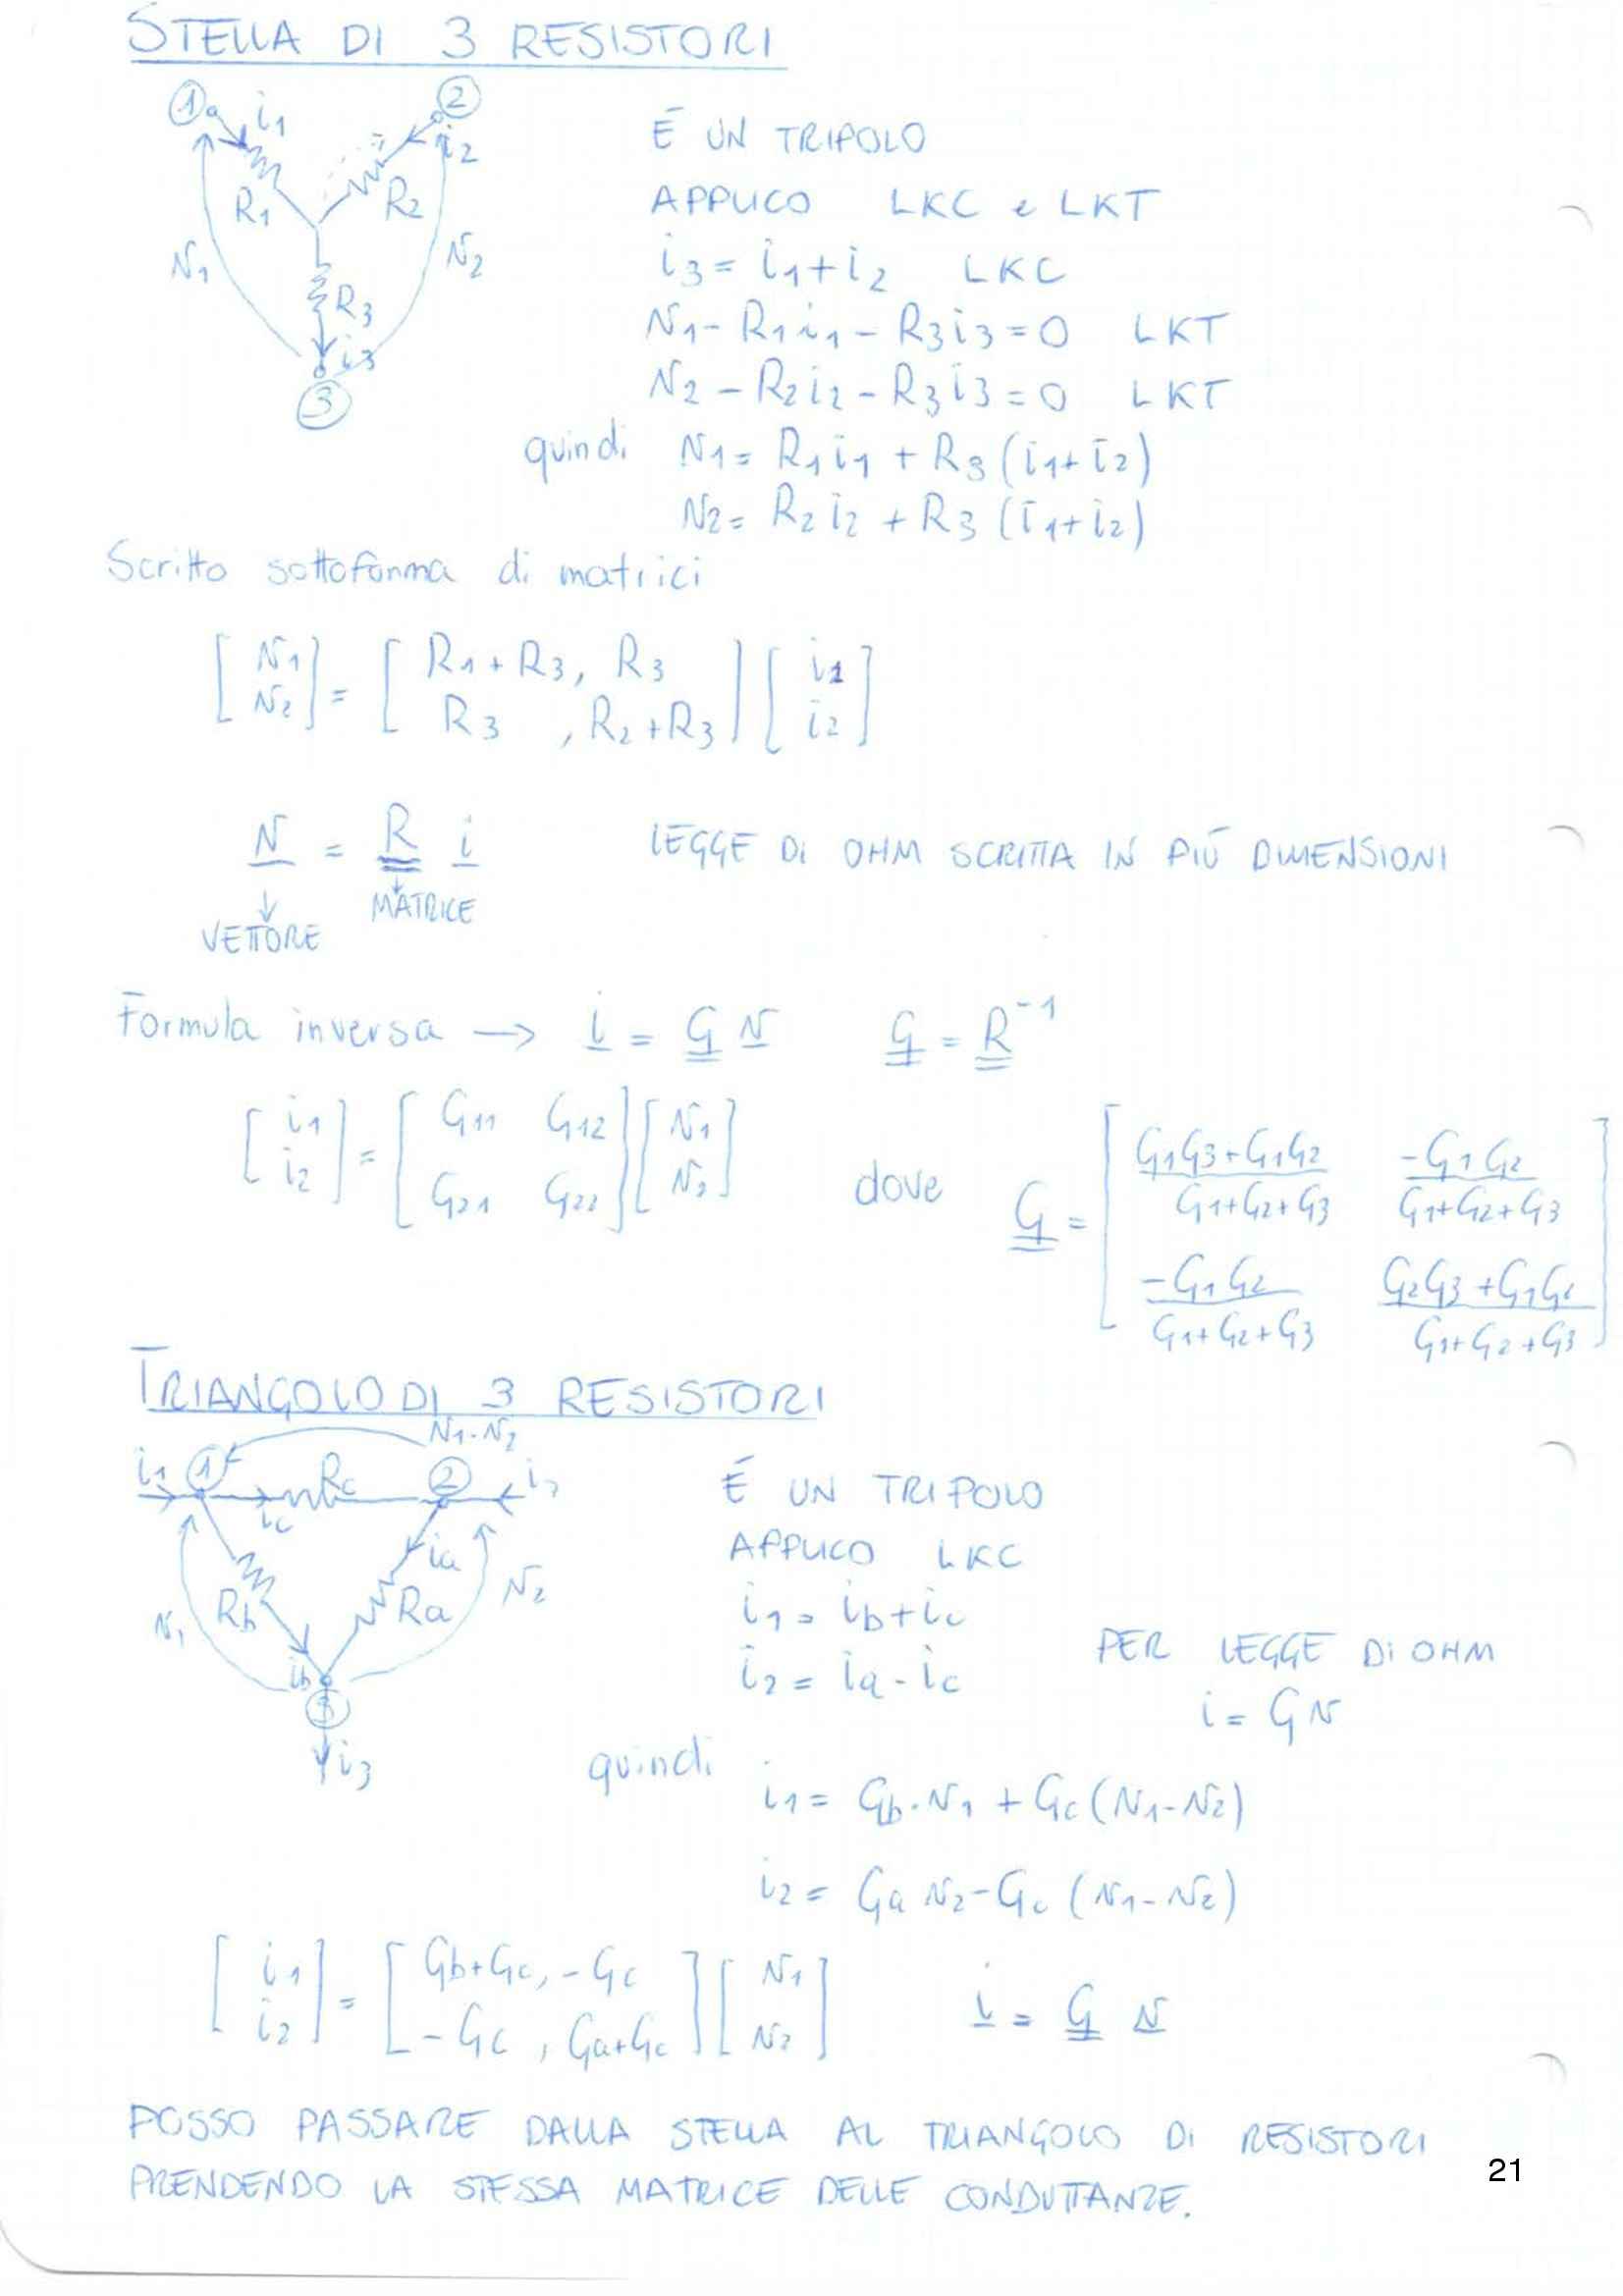 STELLA DI 3 RESISTORI
1 i1 2 i2
R1 R2
N1 N2
R3
i3
3
É UN TRIPOLO
APPLICO LKC e LKT
i3 = i1+i2 LKC
N1 - R1i1 - R3i3 = 0 LKT
N2 - R2i2 - R3i3 = 0 LKT
quindi N1 = R1i1 + R3 (i1+i2)
N2 = R2i2 + R3 (i1+i2)
Scritto sottoforma di matrici
[N1 N2] = [R1+R3, R3 R3, R2+R3] [i1 i2]
N = R i LEGGE DI OHM SCRITTA IN PIÙ DIMENSIONI
↓ ↓
VETTORE MATRICE
Formula inversa → i = G N G = R⁻¹
[i1 i2] = [G11 G12 G21 G22] [N1 N2] dove G = [(G1G3+G1G2)/(G1+G2+G3) (-G1G2)/(G1+G2+G3) (-G1G2)/(G1+G2+G3) (G2G3+G1G2)/(G1+G2+G3)]
TRIANGOLO DI 3 RESISTORI
N1-N2
i1 1 Rc 2 i2
ic
ia
N1 Rb Ra N2
ib
3
i3
É UN TRIPOLO
APPLICO LKC
i1 = ib+ic
i2 = ia-ic
PER LEGGE DI OHM
i = G N
quindi i1 = Gb·N1 + Gc(N1-N2)
i2 = Ga N2 - Gc (N1-N2)
[i1 i2] = [Gb+Gc, -Gc -Gc, Ga+Gc] [N1 N2] i = G N
POSSO PASSARE DALLA STELLA AL TRIANGOLO DI RESISTORI
PRENDENDO LA STESSA MATRICE DELLE CONDUTTANZE.
21